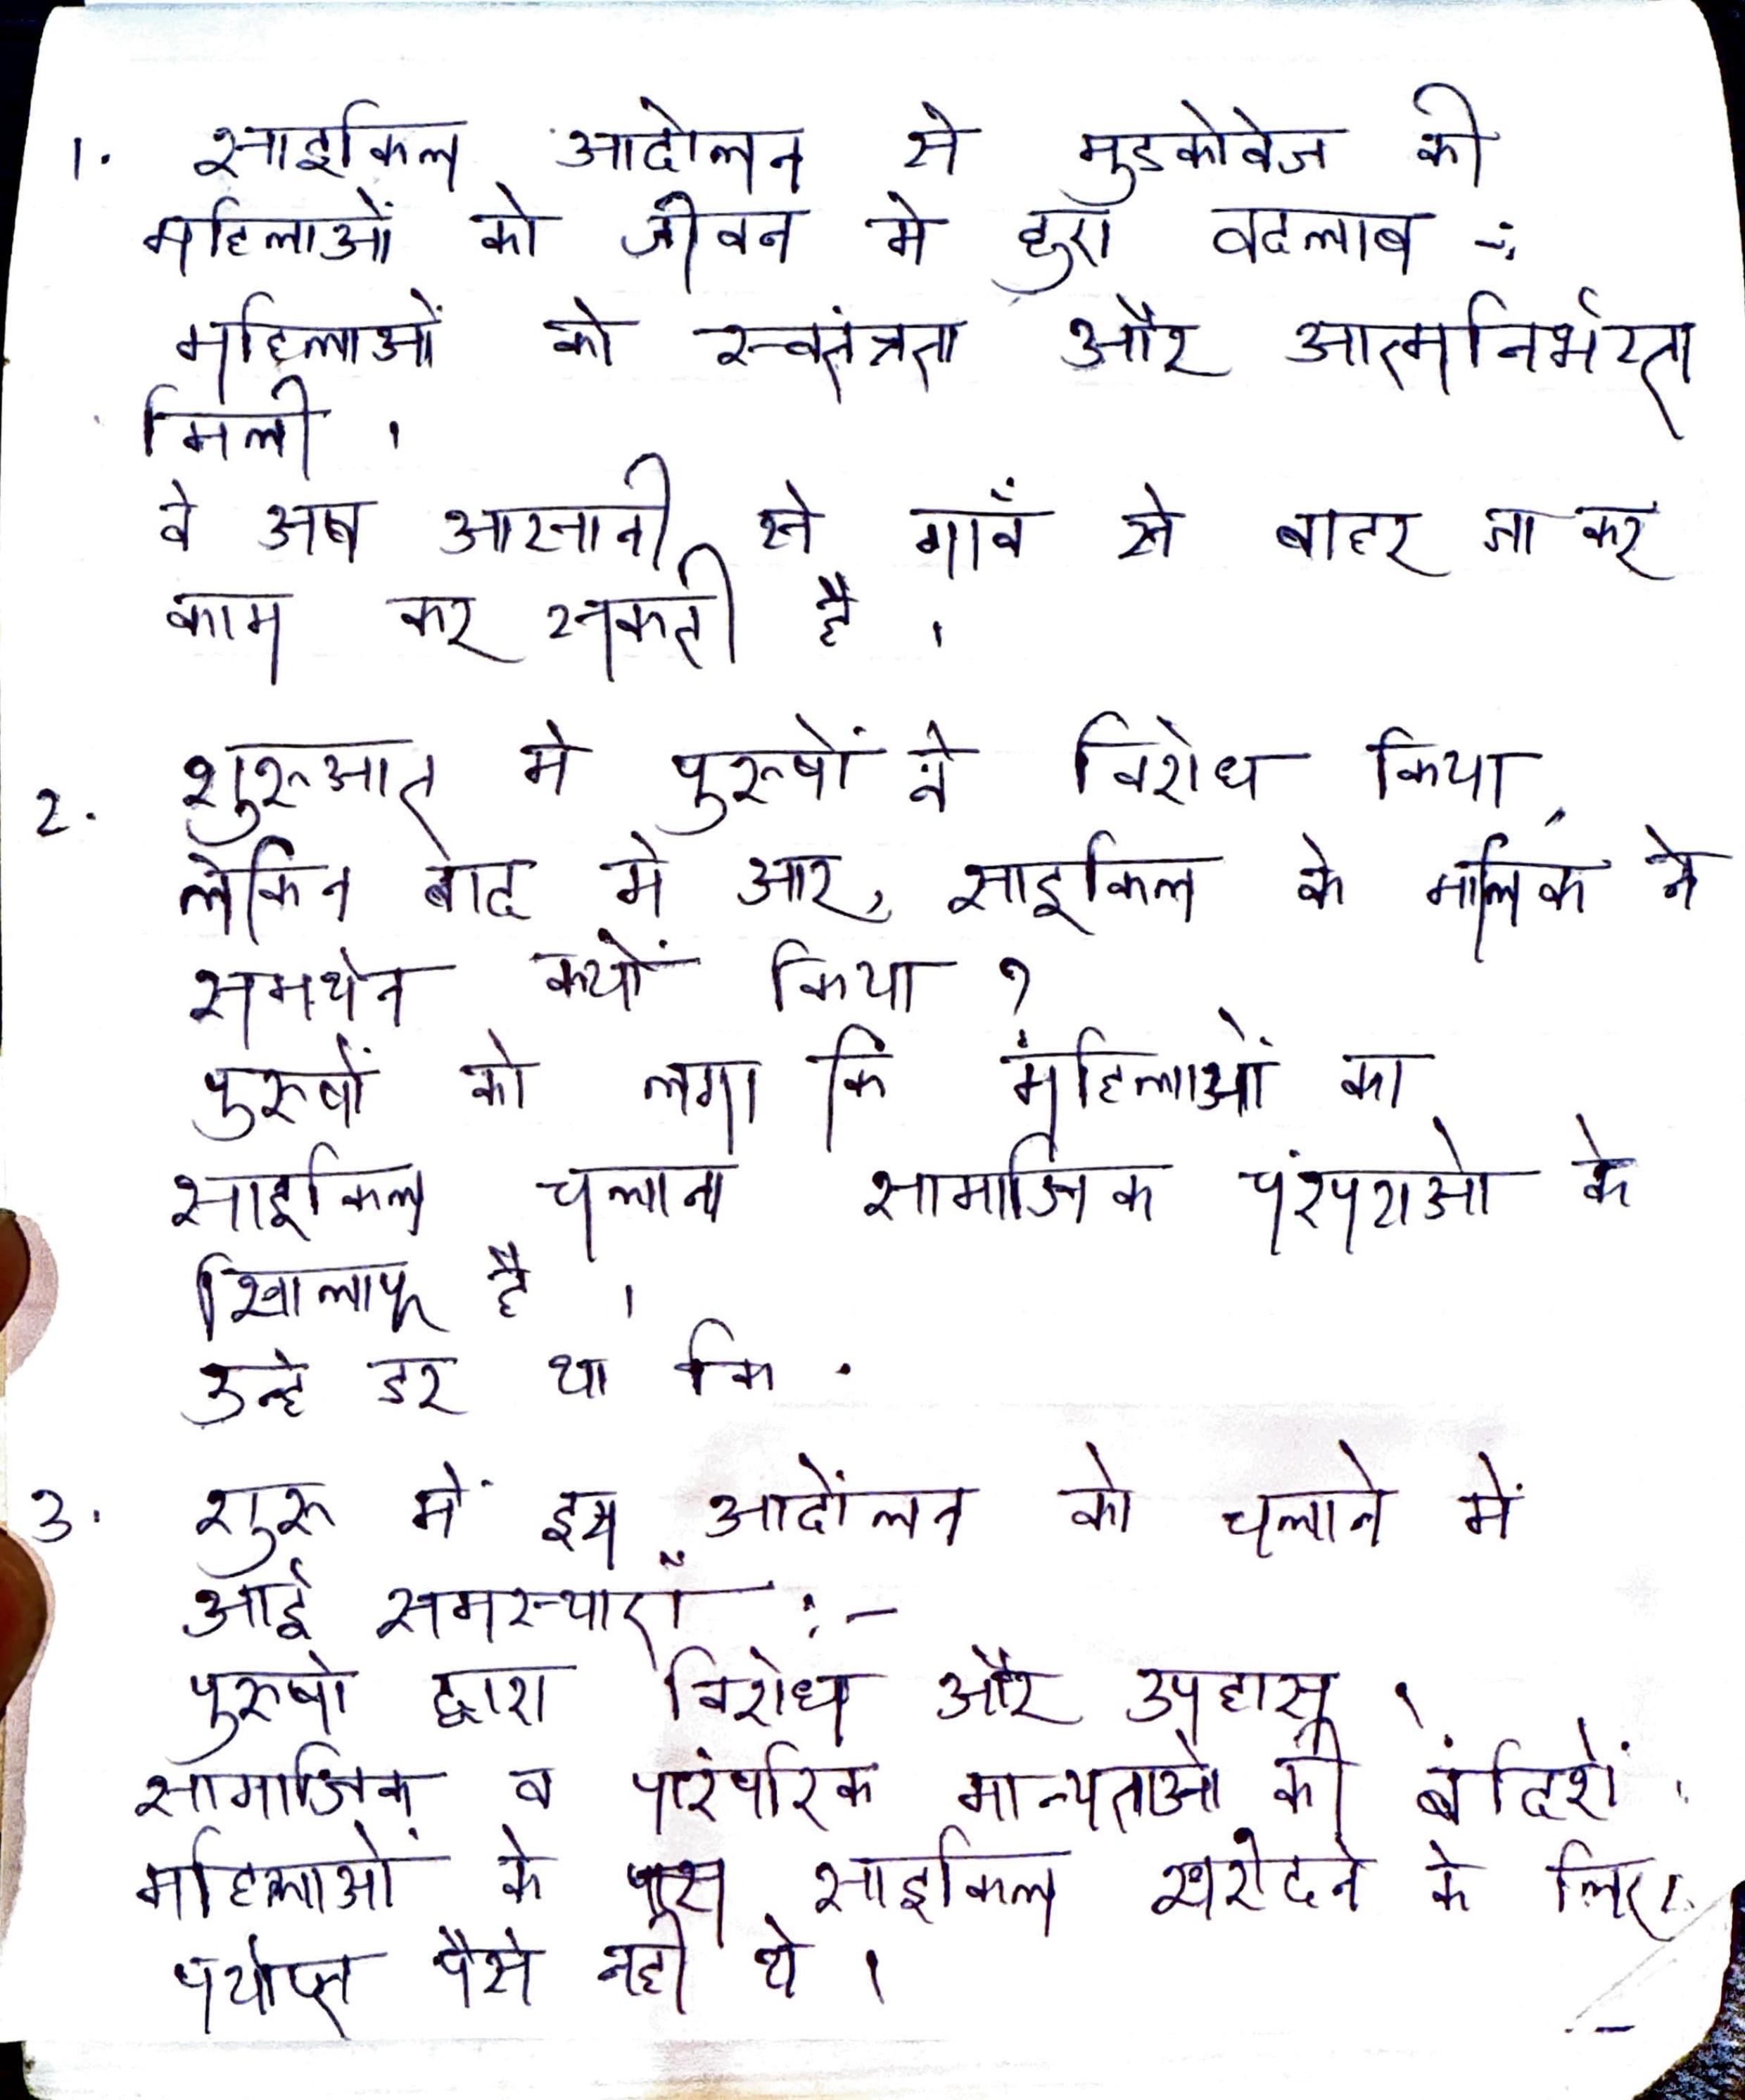 1. साईकिल आदोलन से मुडकोवेज की
महिलाओं को जीवन मे हुए वदलाब -:
महिलाओं को स्वतंत्रता और आत्मनिर्भरता
मिली ।
वे अब आसानी से गावँ से बाहर जा कर
काम कर सकती है ।
2. शुरुआत मे पुरुषों ने विरोध किया,
लेकिन बाद मे आर, साइकिल के मालिक ने
समर्थन क्यों किया ?
पुरुषों को लगा कि महिलाओं का
साइकिल चलाना सामाजिक पंरपराओ के
खिलाफ है ।
उन्हे डर था कि .
3. शुरू में इस आदोंलन को चलाने में
आई समस्याएँ :-
पुरुषो द्वारा विरोध और उपहास ।
सामाजिक व पारंपरिक मान्यताओ की बंदिशें ।
महिलाओं के पास साइकिल खरीदने के लिए
पर्याप्त पैसे नही थे ।